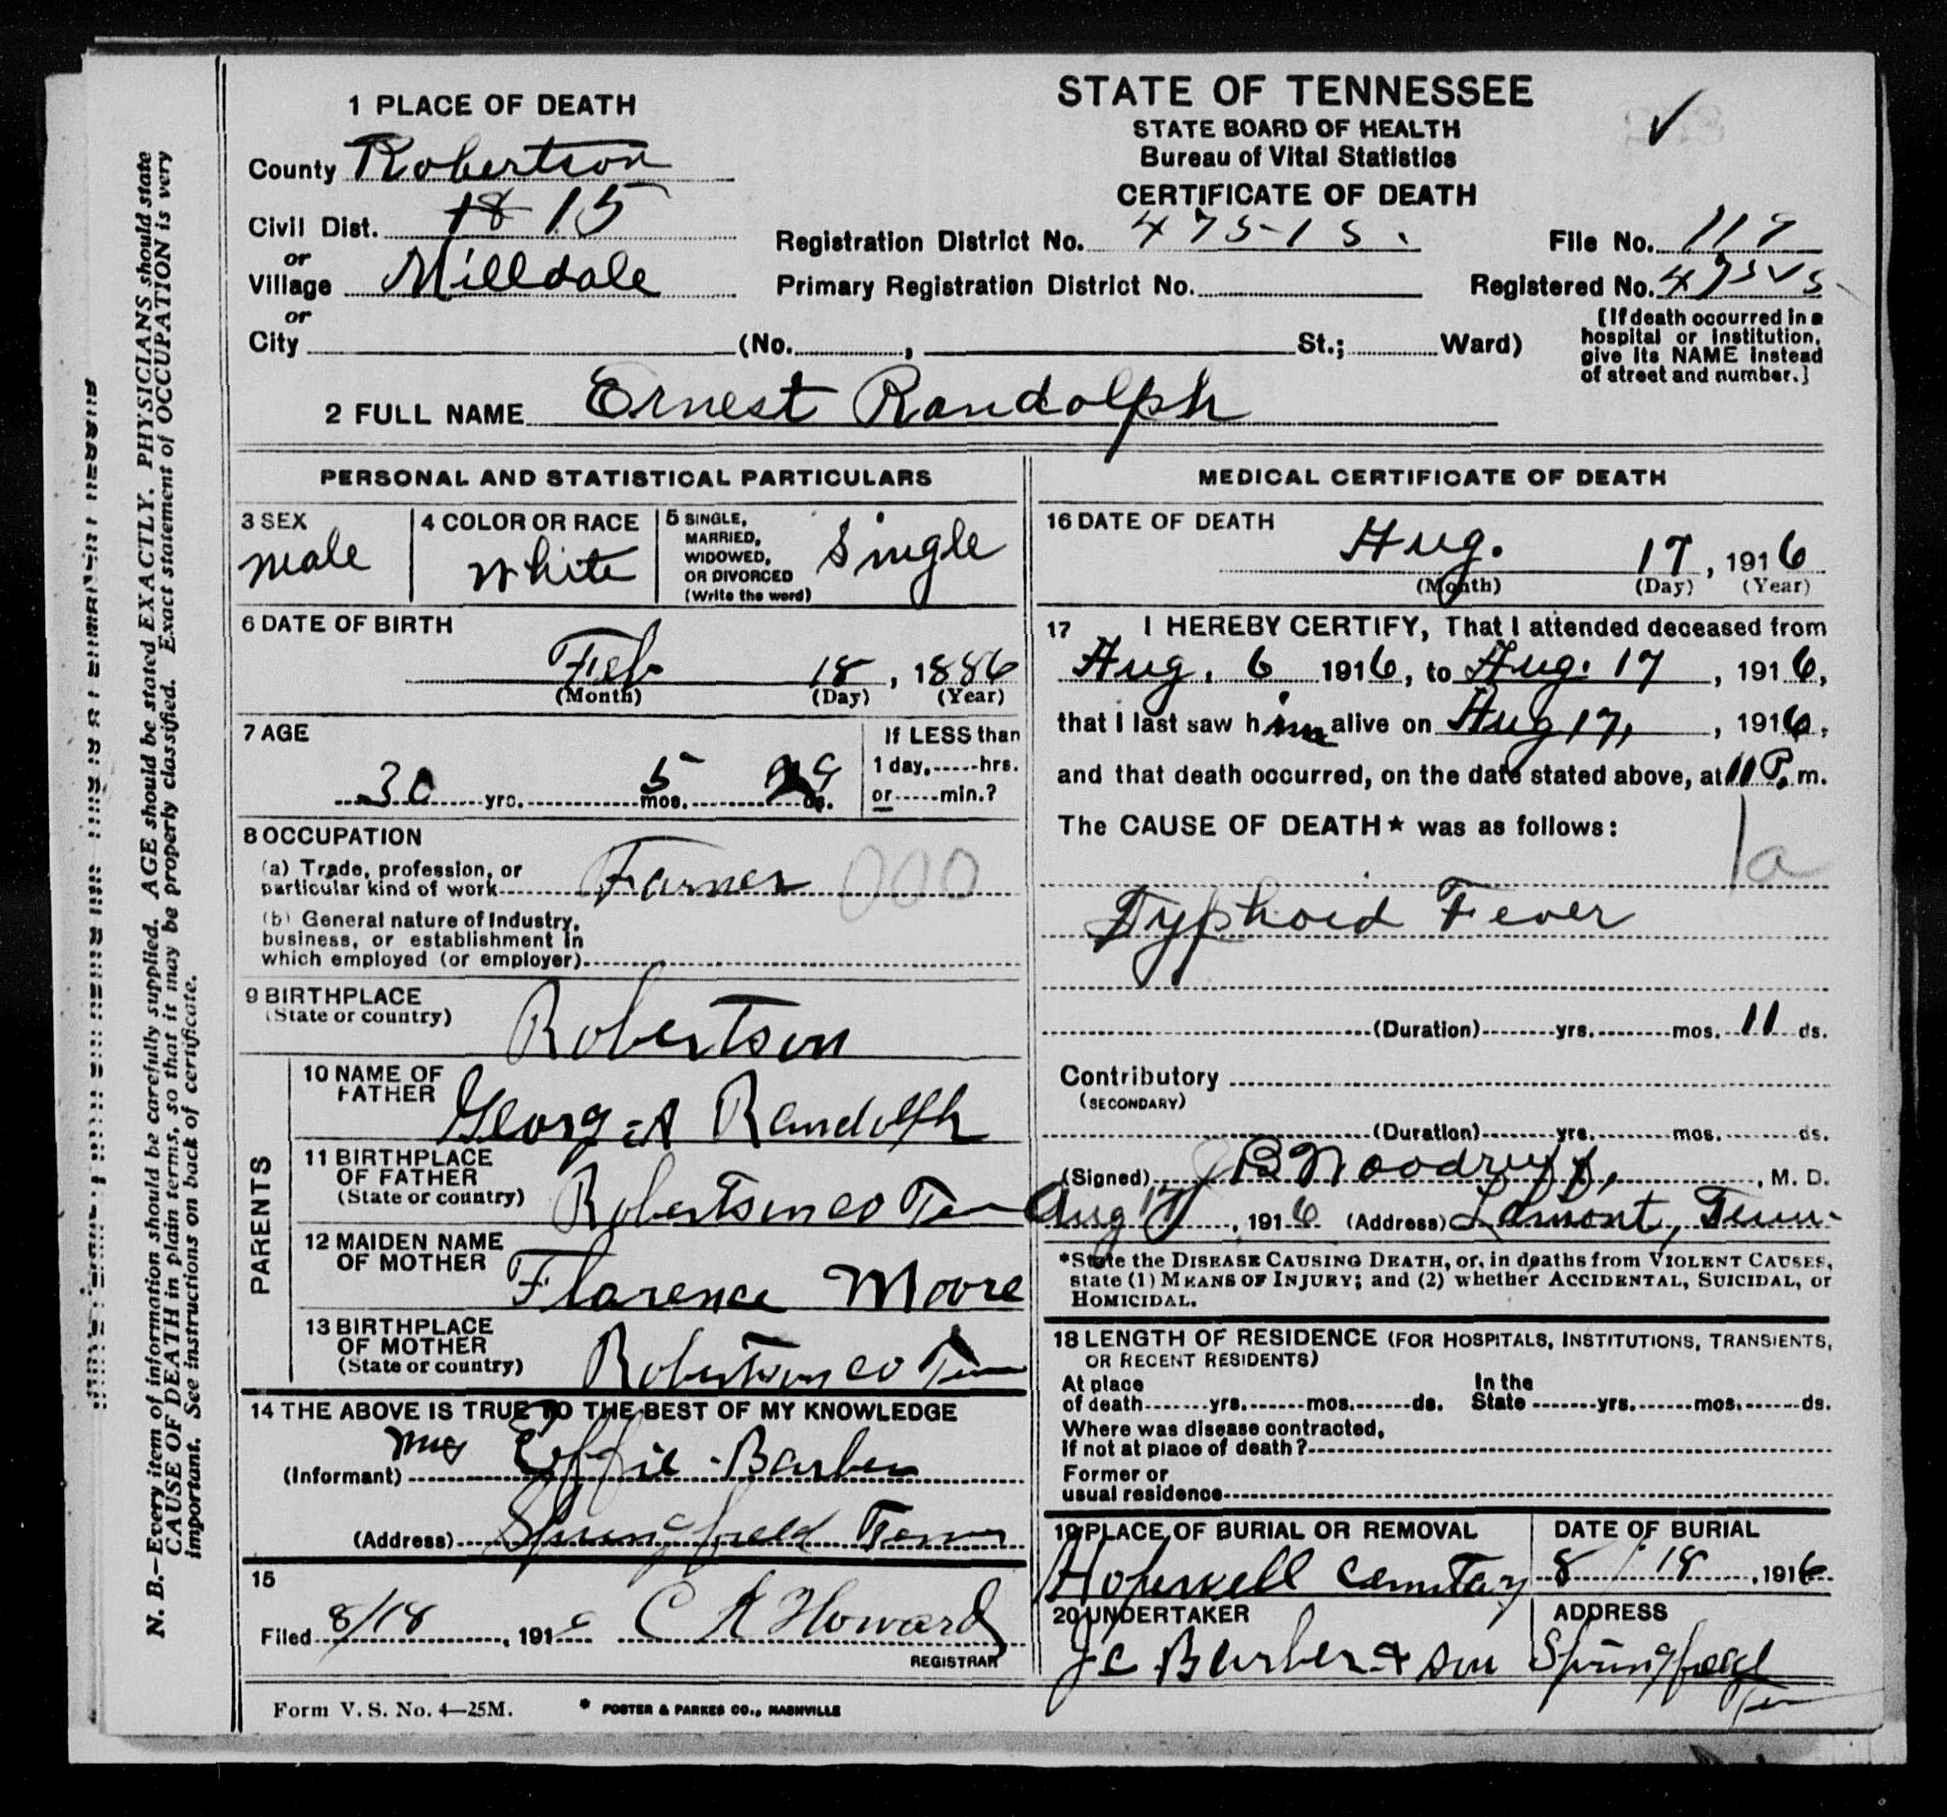 STATE OF TENNESSEE
STATE BOARD OF HEALTH
Bureau of Vital Statistics
CERTIFICATE OF DEATH
1 PLACE OF DEATH
County Robertson
Civil Dist. 18 15
or
Village Milldale
or
City (No. , St.; Ward)
Registration District No. 475-15.
File No. 119
Primary Registration District No.
Registered No.
[If death occurred in a
hospital or institution,
give its NAME instead
of street and number.]
2 FULL NAME Ernest Randolph
PERSONAL AND STATISTICAL PARTICULARS
3 SEX
male
4 COLOR OR RACE
White
5 SINGLE,
MARRIED,
WIDOWED,
OR DIVORCED
(Write the word)
Single
6 DATE OF BIRTH
Feb 18, 1886
(Month) (Day) (Year)
7 AGE
30 yrs. 5 mos. ds.
If LESS than
1 day, hrs.
or min.?
8 OCCUPATION
(a) Trade, profession, or
particular kind of work Farmer 000
(b) General nature of industry,
business, or establishment in
which employed (or employer)
9 BIRTHPLACE
(State or country)
Robertson
PARENTS
10 NAME OF
FATHER
George A Randolph
11 BIRTHPLACE
OF FATHER
(State or country)
Robertson co Ten
12 MAIDEN NAME
OF MOTHER
Florence Moore
13 BIRTHPLACE
OF MOTHER
(State or country)
Robertson co Ten
14 THE ABOVE IS TRUE TO THE BEST OF MY KNOWLEDGE
(Informant) Mrs Effie Barber
(Address) Springfield Tenn
15
Filed 8/18, 1916 C A Howard
REGISTRAR
MEDICAL CERTIFICATE OF DEATH
16 DATE OF DEATH
Aug. 17, 1916
(Month) (Day) (Year)
17 I HEREBY CERTIFY, That I attended deceased from
Aug. 6 1916, to Aug. 17, 1916,
that I last saw him alive on Aug 17, 1916,
and that death occurred, on the date stated above, at 11 P. m.
The CAUSE OF DEATH* was as follows:
1a
Typhoid Fever
(Duration) yrs. mos. 11 ds.
Contributory
(SECONDARY)
(Duration) yrs. mos. ds.
(Signed) J B Woodruff, M. D.
Aug 17, 1916 (Address) Lamont, Tenn.
*State the DISEASE CAUSING DEATH, or, in deaths from VIOLENT CAUSES,
state (1) MEANS OF INJURY; and (2) whether ACCIDENTAL, SUICIDAL, or
HOMICIDAL.
18 LENGTH OF RESIDENCE (FOR HOSPITALS, INSTITUTIONS, TRANSIENTS,
OR RECENT RESIDENTS)
At place
of death yrs. mos. ds.
In the
State yrs. mos. ds.
Where was disease contracted,
if not at place of death?
Former or
usual residence
19 PLACE OF BURIAL OR REMOVAL
Hopewell Cemetary
DATE OF BURIAL
8/18, 1916
20 UNDERTAKER
J C Barber & Son
ADDRESS
Springfield
Ten
Form V. S. No. 4—25M.
* FOSTER & PARKES CO., NASHVILLE
N. B.—Every item of information should be carefully supplied. AGE should be stated EXACTLY. PHYSICIANS should state
CAUSE OF DEATH in plain terms, so that it may be properly classified. Exact statement of OCCUPATION is very
important. See instructions on back of certificate.